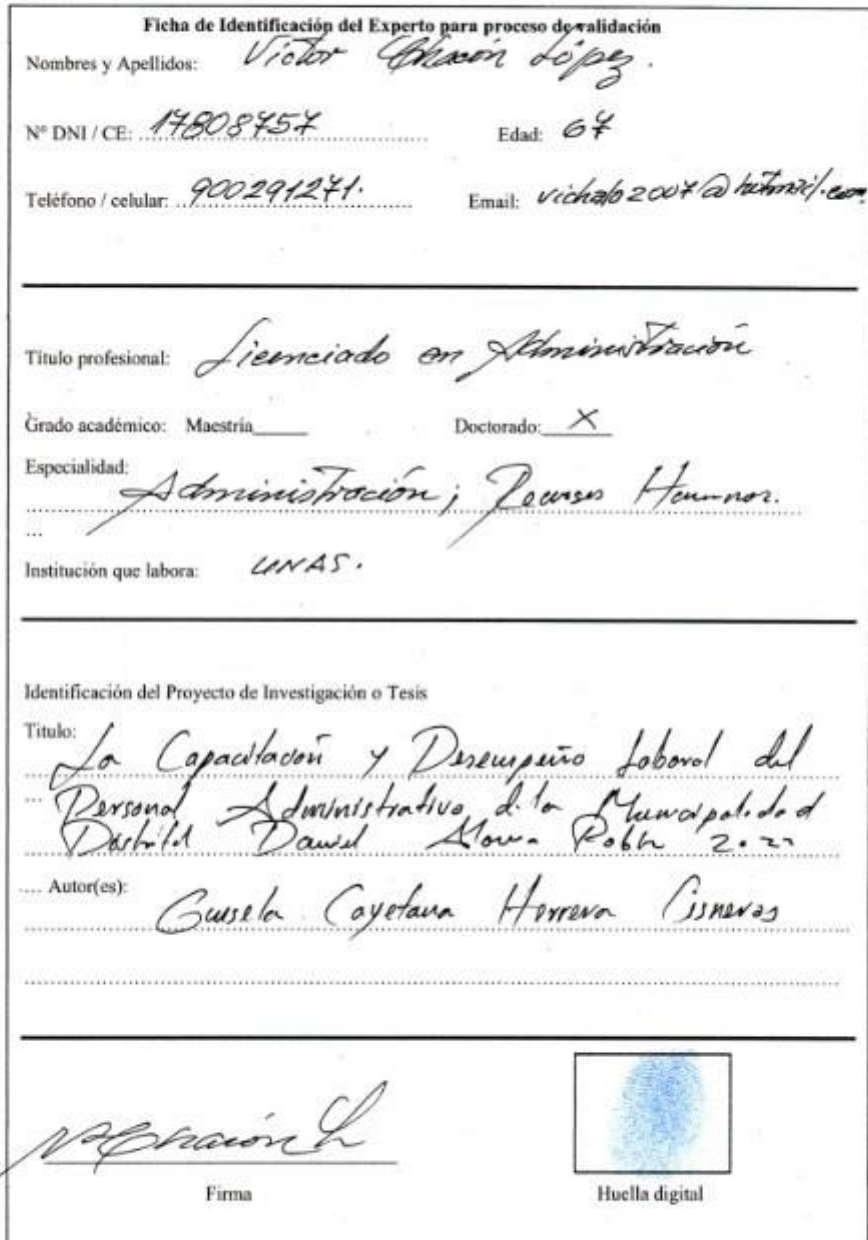 Ficha de Identificación del Experto para proceso de validación
Nombres y Apellidos: Víctor Chacón López.
Nº DNI / CE: 17808757 Edad: 67
Teléfono / celular: 900291271. Email: vichalo2007@hotmail.com
Título profesional: Licenciado en Administración
Grado académico: Maestría Doctorado: X
Especialidad:
Administración; Recursos Humanos.
...
Institución que labora: UNAS.
Identificación del Proyecto de Investigación o Tesis
Titulo:
La Capacitación y Desempeño Laboral del
... Personal Administrativo de la Municipalidad
Distrital Daniel Alomia Robles 2022
.... Autor(es):
Guisela Cayetana Herrera Cisneros
Chacón
Firma Huella digital